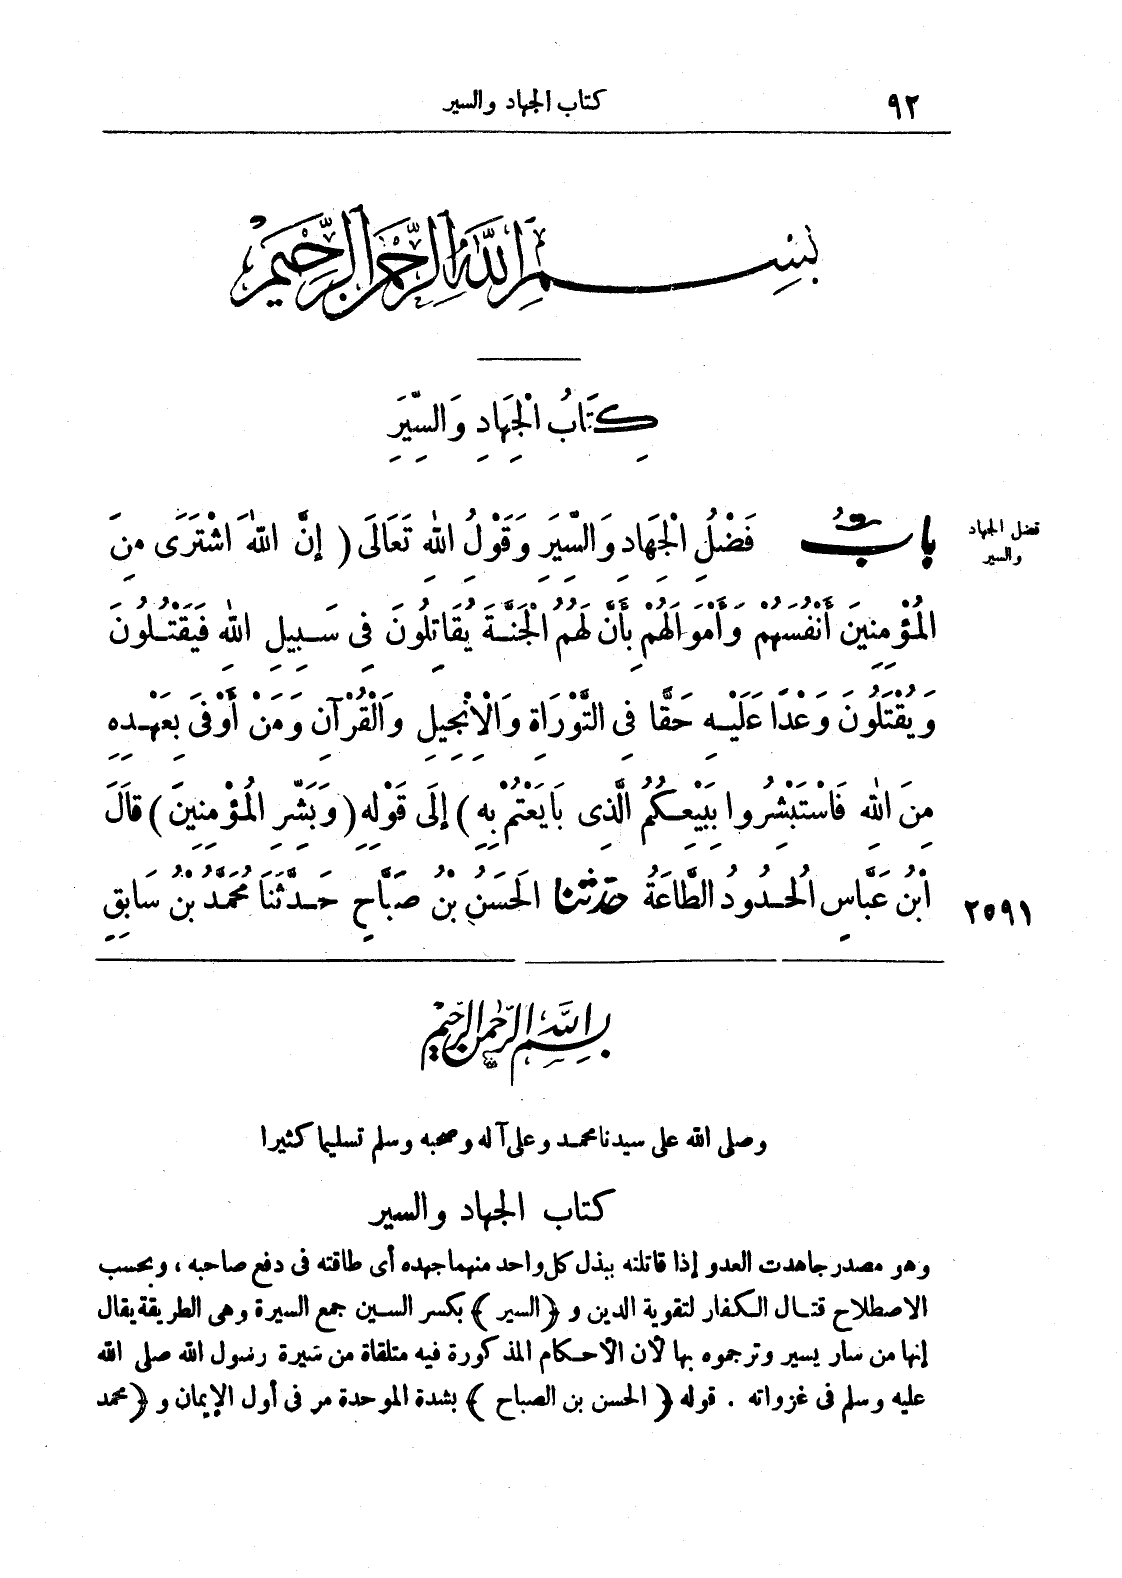 ٩٢ كتاب الجهاد والسير
بِسْمِ اللَّهِ الرَّحْمَنِ الرَّحِيمِ
كِتَابُ الْجِهَادِ وَالسِّيَرِ
فضل الجهاد
والسير
بابُ فَضْلِ الْجِهَادِ وَالسِّيَرِ وَقَوْلِ اللهِ تَعَالَى (إِنَّ اللهَ اشْتَرَى مِنَ
الْمُؤْمِنِينَ أَنْفُسَهُمْ وَأَمْوَالَهُمْ بِأَنَّ لَهُمُ الْجَنَّةَ يُقَاتِلُونَ فِى سَبِيلِ اللهِ فَيَقْتُلُونَ
وَيُقْتَلُونَ وَعْدًا عَلَيْهِ حَقًّا فِى التَّوْرَاةِ وَالْإِنْجِيلِ وَالْقُرْآنِ وَمَنْ أَوْفَى بِعَهْدِهِ
مِنَ اللهِ فَاسْتَبْشِرُوا بِبَيْعِكُمُ الَّذِى بَايَعْتُمْ بِهِ) إِلَى قَوْلِهِ (وَبَشِّرِ الْمُؤْمِنِينَ) قَالَ
ابْنُ عَبَّاسٍ الْحُدُودُ الطَّاعَةُ حَدَّثَنَا الْحَسَنُ بْنُ صَبَّاحٍ حَدَّثَنَا مُحَمَّدُ بْنُ سَابِقٍ
٢٥٩١
بسم الله الرحمن الرحيم
وصلى الله على سيدنا محمد وعلى آله وصحبه وسلم تسليما كثيرا
كتاب الجهاد والسير
وهو مصدر جاهدت العدو إذا قاتلته ببذل كل واحد منهما جهده أى طاقته فى دفع صاحبه، وبحسب
الاصطلاح قتال الكفار لتقوية الدين و (السير) بكسر السين جمع السيرة وهى الطريقة يقال
إنها من سار يسير وترجموه بها لأن الأحكام المذكورة فيه متلقاة من سيرة رسول الله صلى الله
عليه وسلم فى غزواته . قوله (الحسن بن الصباح) بشدة الموحدة مر فى أول الإيمان و (محمد